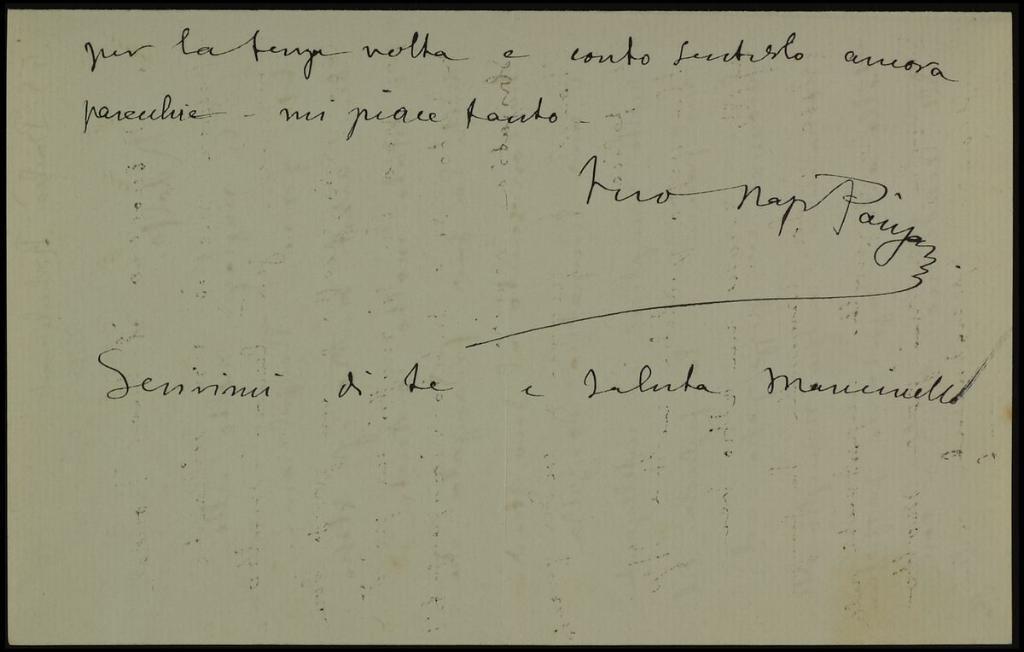 per la terza volta e conto sentirlo ancora
parecchie - mi piace tanto -
tuo Nap. Panza
Scrivimi di te e saluta Mancinelli